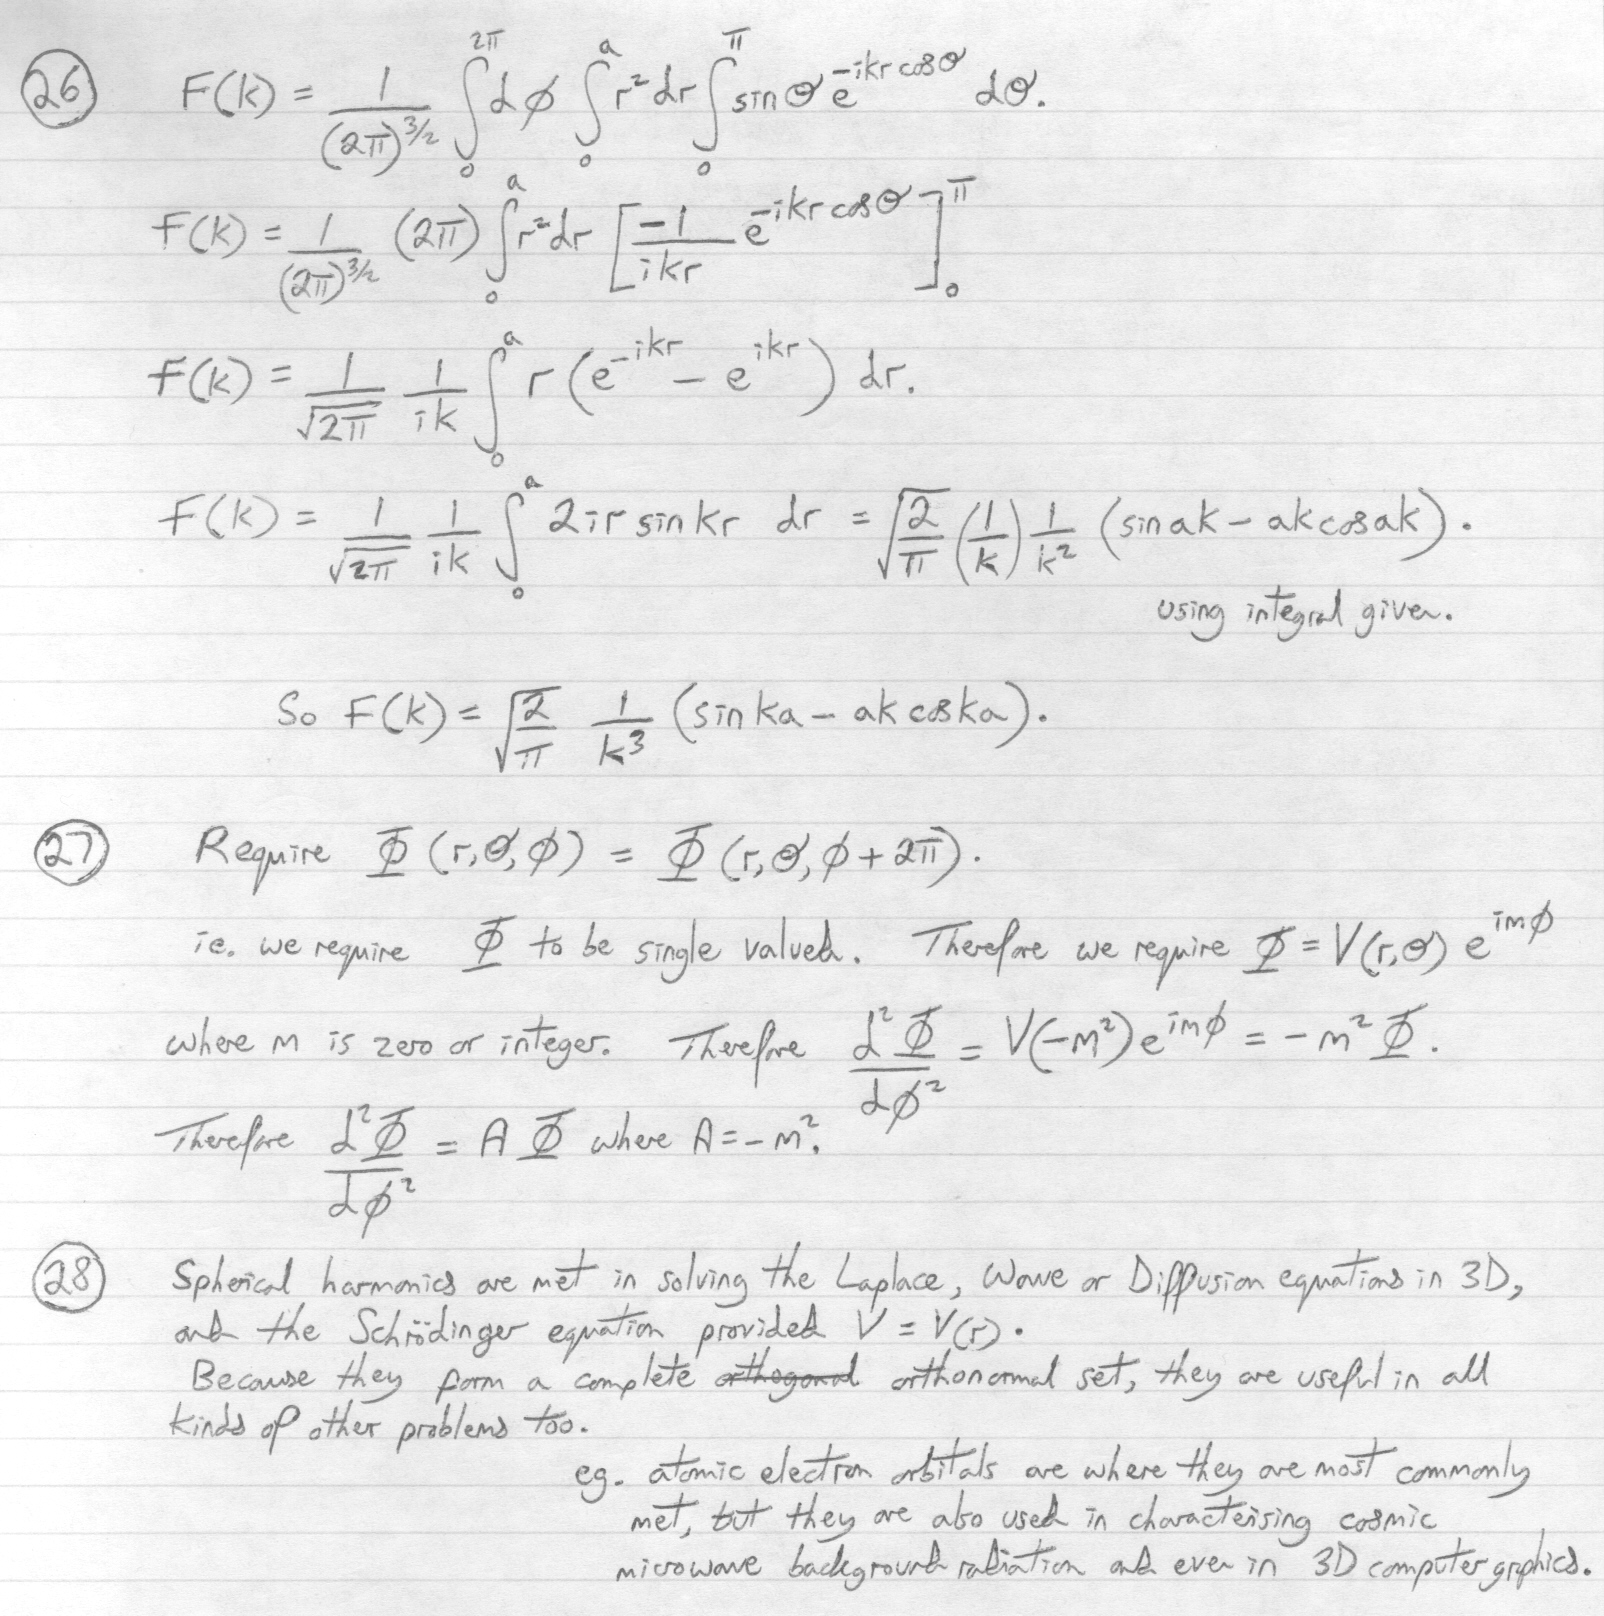 26 F(k) = 1/(2π)^{3/2} ∫_0^{2π} dϕ ∫_0^a r² dr ∫_0^π sin θ e^{-ikr cos θ} dθ.
F(k) = 1/(2π)^{3/2} (2π) ∫_0^a r² dr [ -1/ikr e^{-ikr cos θ} ]_0^π
F(k) = 1/√2π 1/ik ∫_0^a r (e^{-ikr} - e^{ikr}) dr.
F(k) = 1/√2π 1/ik ∫_0^a 2ir sin kr dr = √(2/π) (1/k) 1/k² (sin ak - ak cos ak).
using integral given.
So F(k) = √(2/π) 1/k³ (sin ka - ak cos ka).
27 Require Φ (r, θ, ϕ) = Φ (r, θ, ϕ + 2π).
ie. we require Φ to be single valued. Therefore we require Φ = V(r, θ) e^{imϕ}
where m is zero or integer. Therefore d²Φ/dϕ² = V(-m²) e^{imϕ} = - m² Φ.
Therefore d²Φ/dϕ² = A Φ where A = - m².
28 Spherical harmonics are met in solving the Laplace, Wave or Diffusion equations in 3D,
and the Schrödinger equation provided V = V(r).
Because they form a complete orthogonal orthonormal set, they are useful in all
kinds of other problems too.
eg. atomic electron orbitals are where they are most commonly
met, but they are also used in characterising cosmic
microwave background radiation and even in 3D computer graphics.